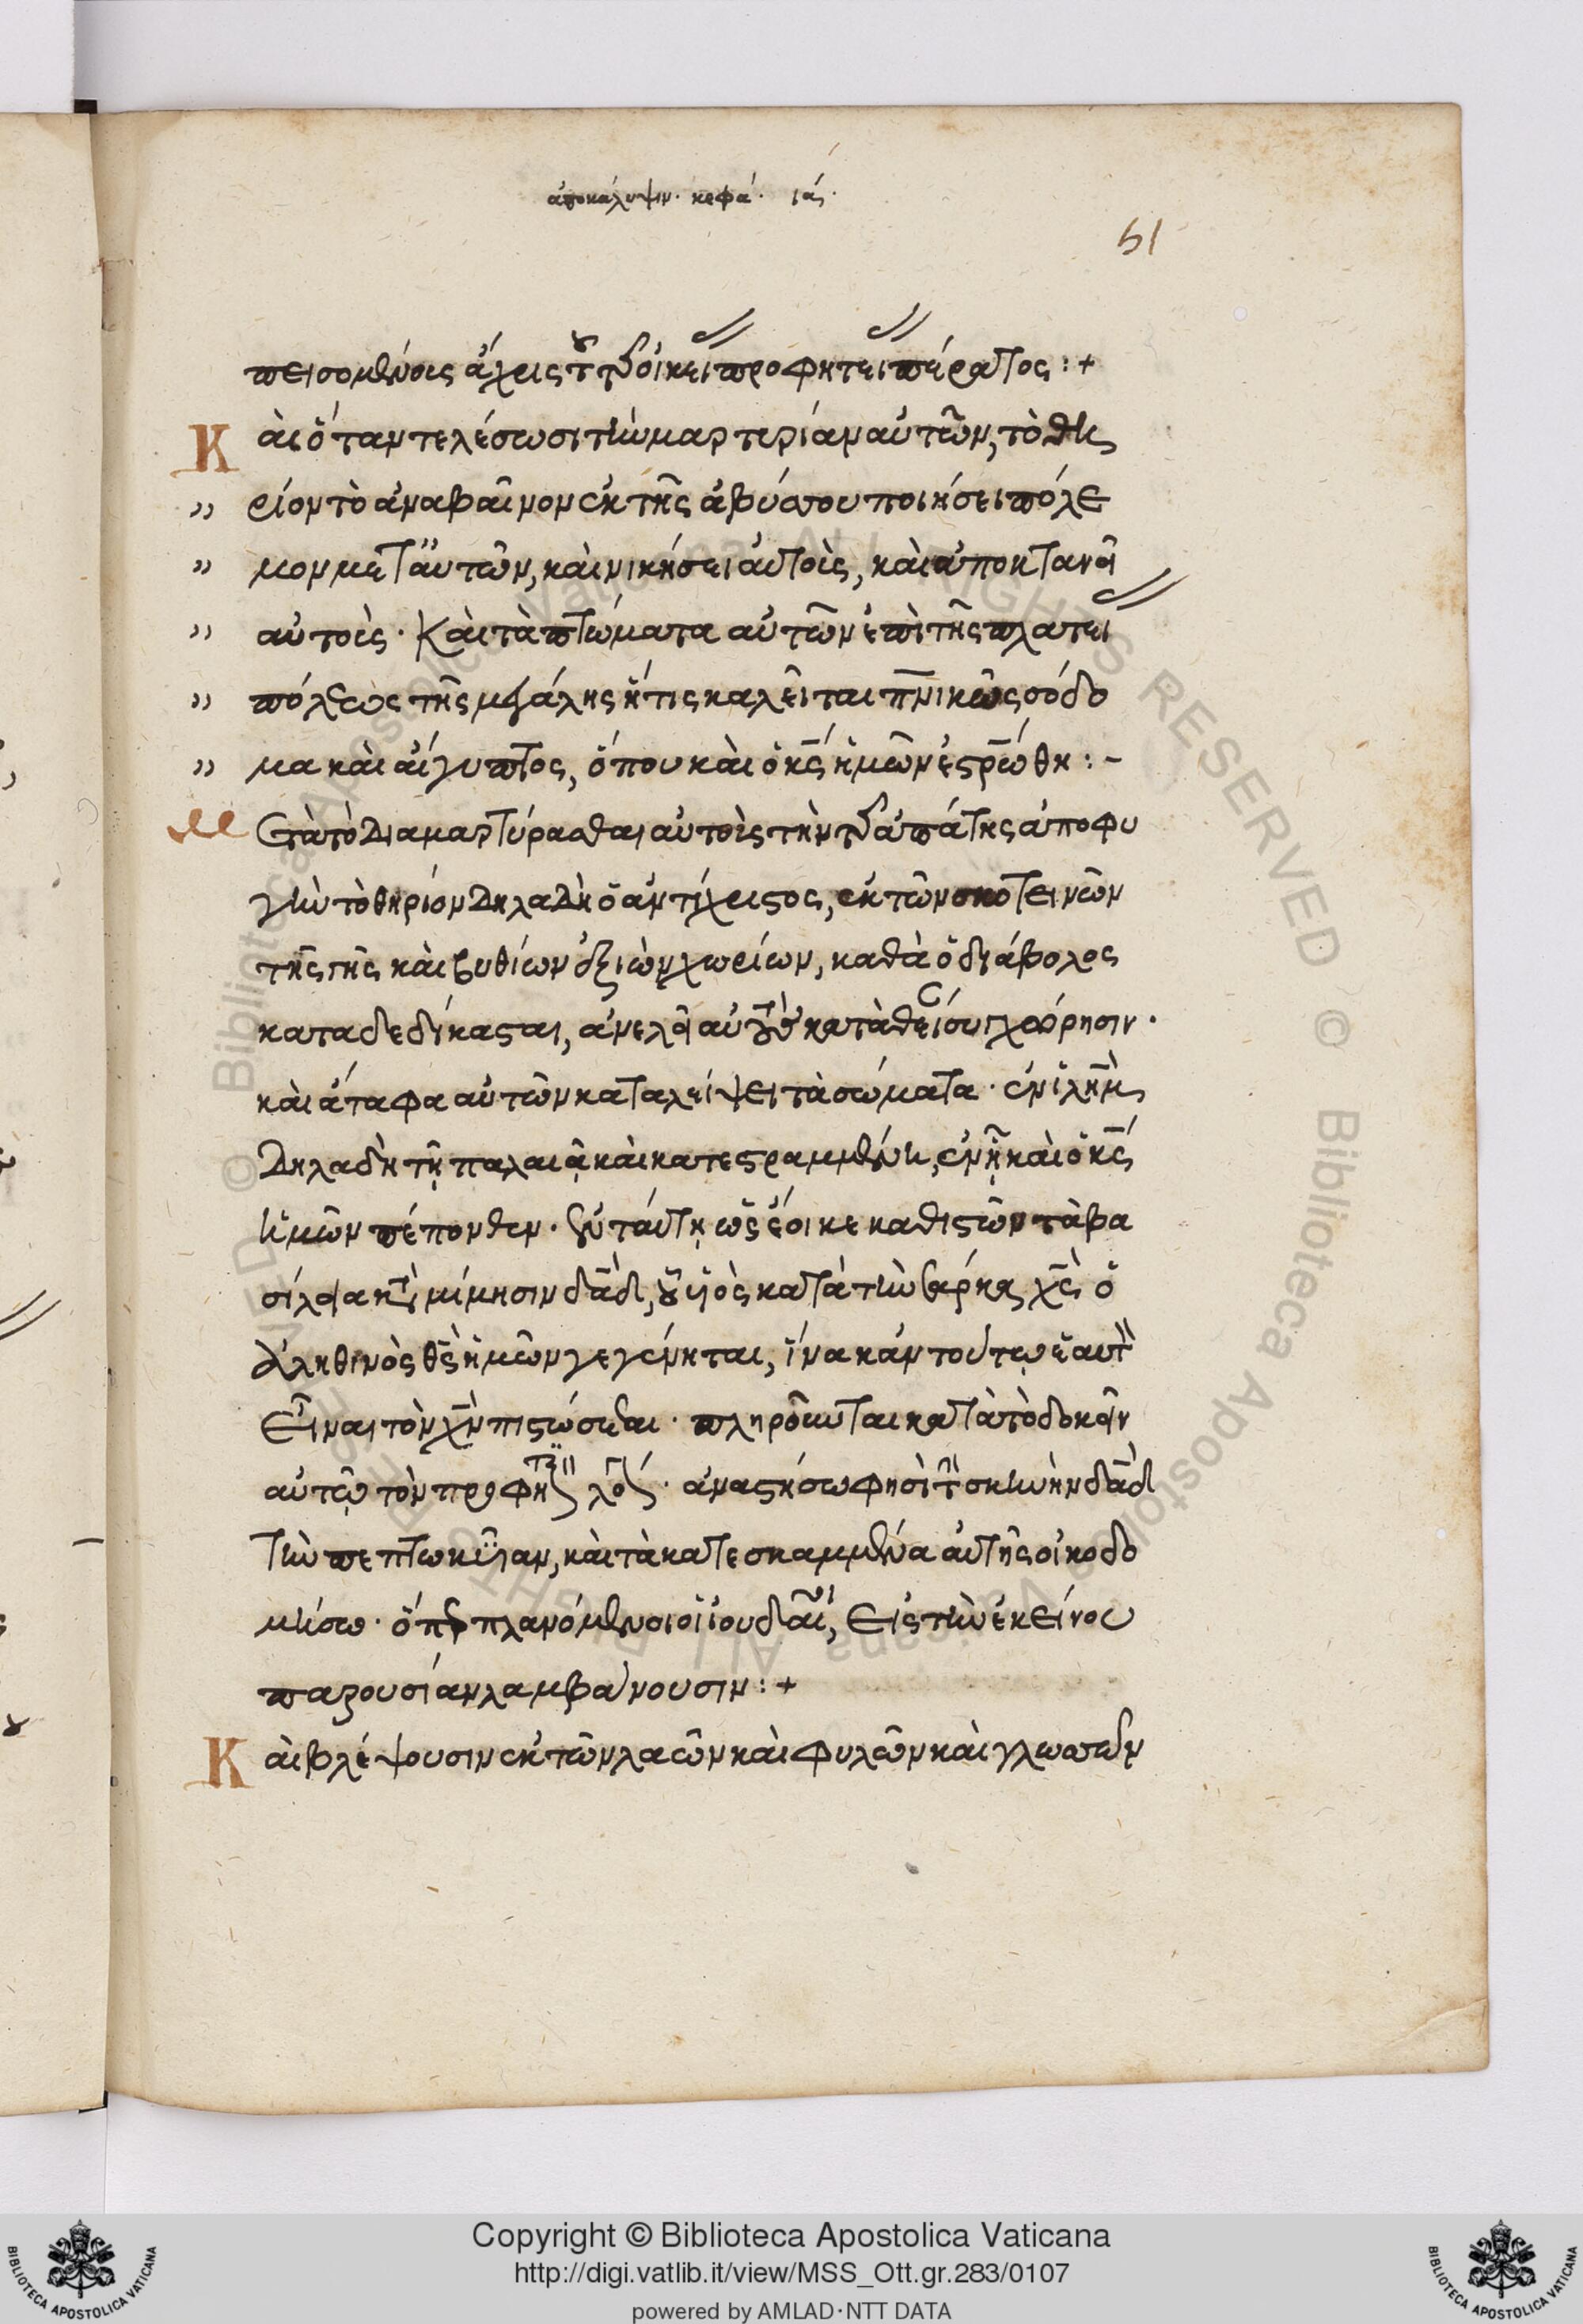 ἀποκάλυψιν· κεφά· ιά·
51
πεισομένοις ἄχρις τοῦ τῆς οἰκείας προφητείας πέρατος:+
Καὶ ὅταν τελέσωσι τὴν μαρτυρίαν αὐτῶν, τὸ θη
ρίον τὸ ἀναβαῖνον ἐκ τῆς ἀβύσσου ποιήσει πόλε
μον μετ' αὐτῶν, καὶ νικήσει αὐτοὺς, καὶ ἀποκτανεῖ
αὐτοὺς· Καὶ τὰ πτώματα αὐτῶν ἐπὶ τῆς πλατείας
πόλεως τῆς μεγάλης ἥτις καλεῖται πνικῶς σόδο
μα καὶ αἴγυπτος, ὅπου καὶ ὁ κς ἡμῶν ἐστρώθη:-
Μετὰ τὸ διαμαρτύρασθαι αὐτοὺς τὴν τῆς ἀπάτης ἀποφυ
γὴν τὸ θηρίον δηλαδὴ ὁ ἀντίχριστος, ἐκ τῶν σκοτεινῶν
τῆς γῆς καὶ βυθίων ἐξιὼν χωρίων, καθὰ ὁ διάβολος
καταδεδίκασται, ἀνελεῖ αὐτοὺς κατὰ θείαν συγχώρησιν·
καὶ ἄταφα αὐτῶν καταλείψει τὰ σώματα· ἐν ἱλημ
δηλαδὴ τῇ παλαιᾷ καὶ κατεστραμμένῃ, ἐν ᾗ καὶ ὁ κς
ἡμῶν πέπονθεν· ἐν ταύτῃ ὡς ἔοικε καθιστῶν τὰ βα
σίλεια κατὰ μίμησιν δαδ, οὗ υἱὸς κατὰ τὴν σάρκα χς ὁ
ἀληθινὸς θς ἡμῶν γεγένηται, ἵνα κἀν τούτῳ ἑαυτὸν
εἶναι τὸν χν πιστώσηται· πληροῦνται κατὰ τὸ δοκεῖν
αὐτῷ τὸν προφητικὸν λόγον· ἀναστήσω φησὶ τὴν σκηνὴν δαδ
τὴν πεπτωκυῖαν, καὶ τὰ κατεσκαμμένα αὐτῆς οἰκοδο
μήσω· ὅπερ πλανόμενοι οἱ ἰουδαῖοι, εἰς τὴν ἐκείνου
παρουσίαν λαμβάνουσιν:+
Καὶ βλέψουσιν ἐκ τῶν λαῶν καὶ φυλῶν καὶ γλωσσῶν
Copyright © Biblioteca Apostolica Vaticana
http://digi.vatlib.it/view/MSS_Ott.gr.283/0107
powered by AMLAD·NTT DATA
BIBLIOTECA APOSTOLICA VATICANA
BIBLIOTECA APOSTOLICA VATICANA
© Biblioteca Apostolica Vaticana ALL RIGHTS RESERVED © Biblioteca Apostolica Vaticana ALL RIGHTS RESERVED